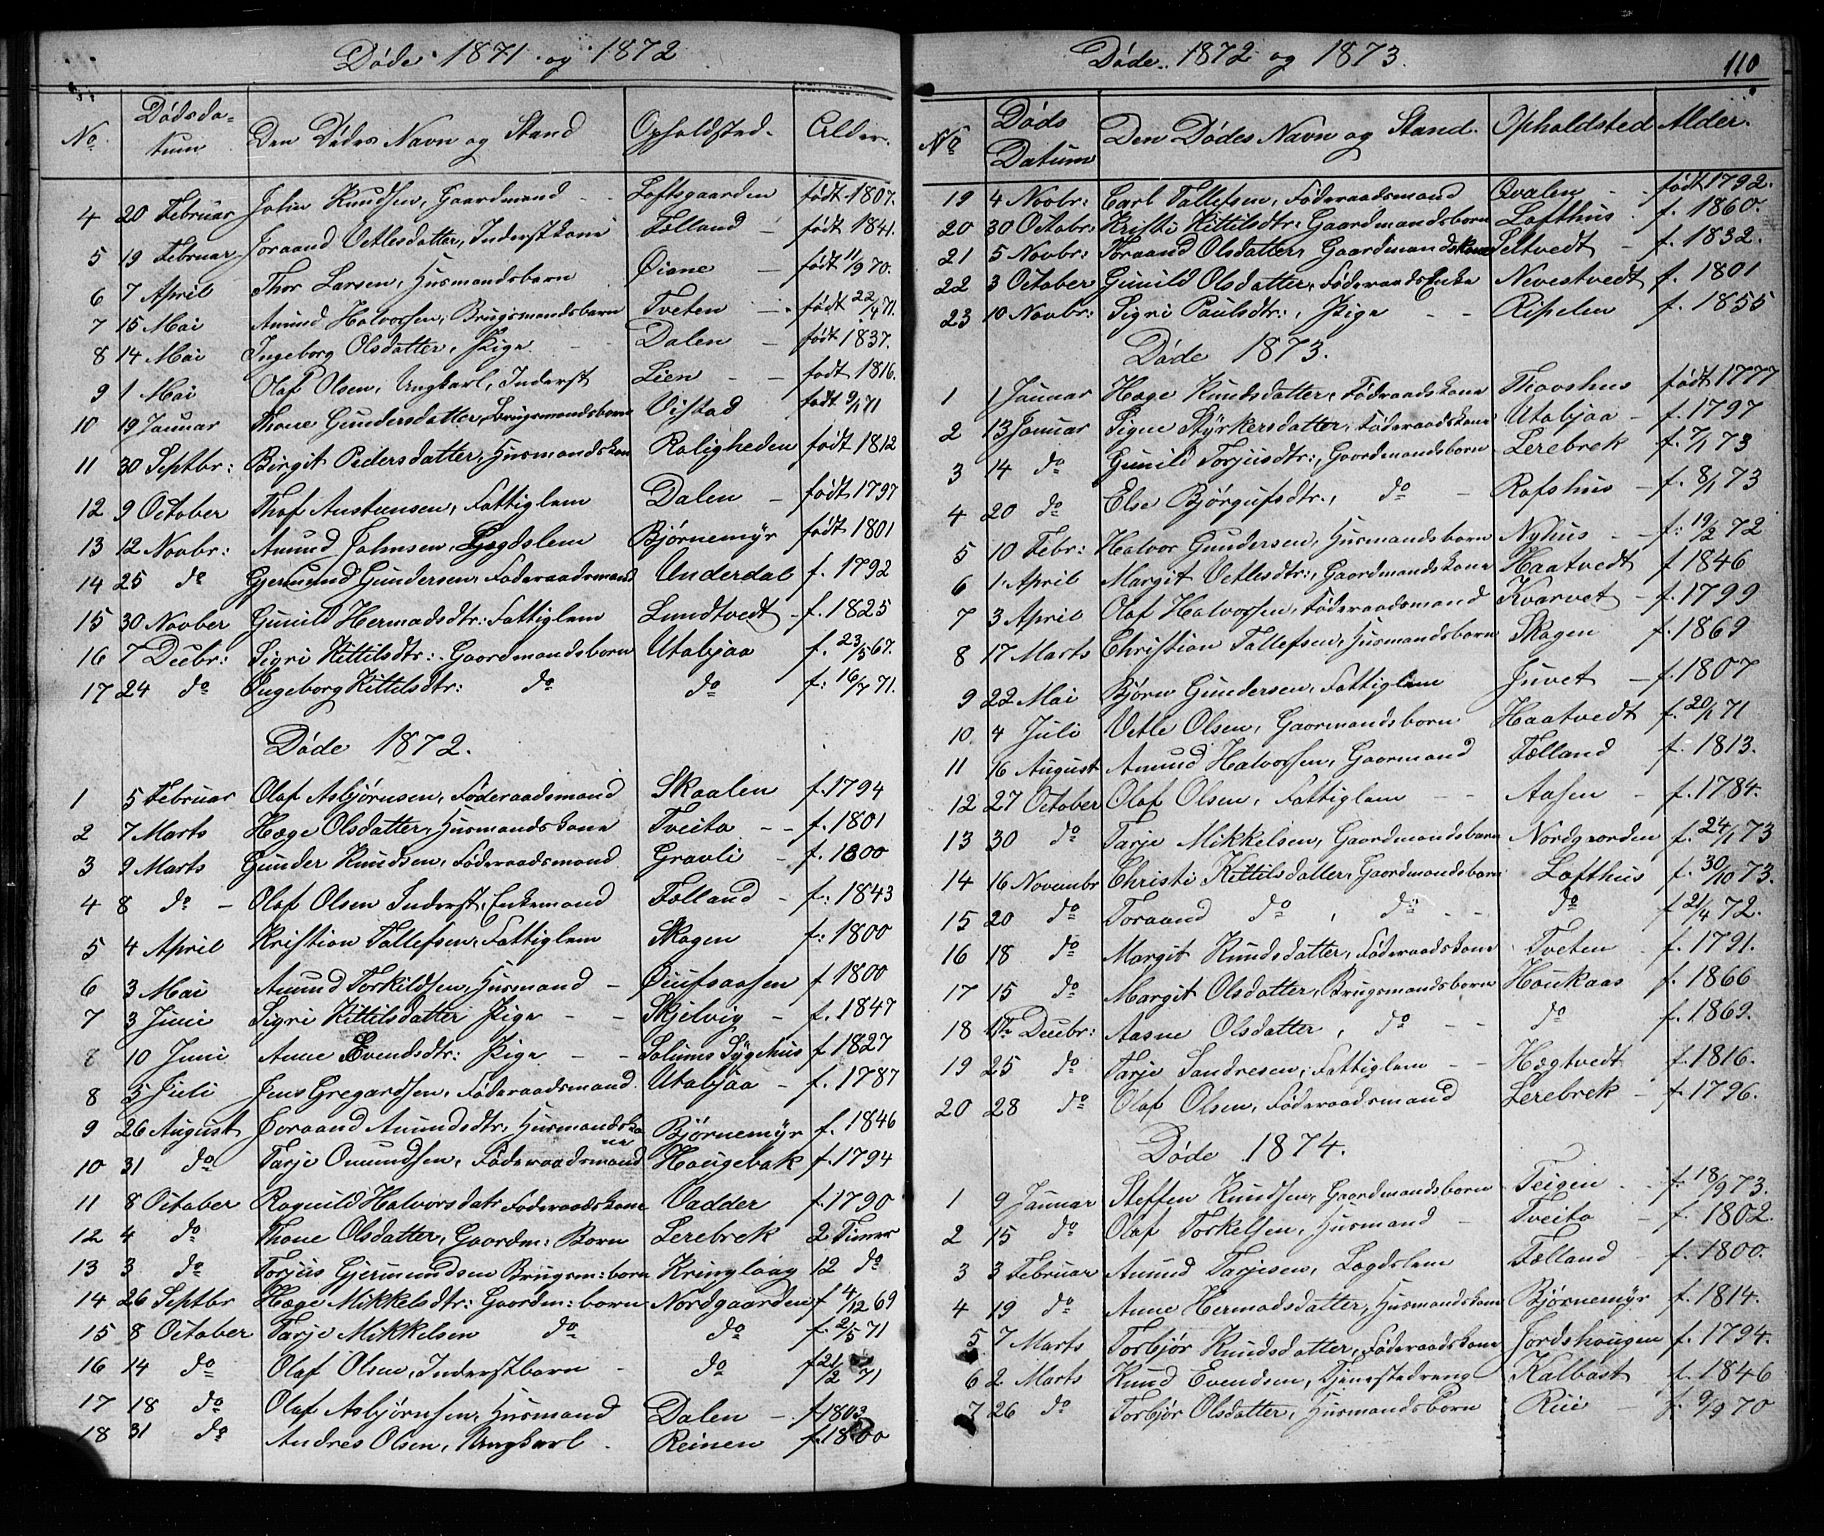 Døde 1871 og 1872
No. Dødsda- Den Dødes Navn og Stand Opholdsted. Alder.
tum
4 20 Februar John Knudsen, Gaardmand Loftsgaarden født 1807.
5 19 Februar Joraand Vetlesdatter, Inderstkone Følland født 1841.
6 7 April Thor Larsen, Husmandsbarn Øiane født 11/9 70.
7 15 Mai Amund Halvorsen, Brugsmandsbarn Tveten født 22/4 71.
8 14 Mai Ingeborg Olsdatter, Pige Dalen født 1837.
9 1 Mai Olaf Olsen, Ungkarl, Inderst Lien født 1816.
10 19 Januar Thone Gundersdatter, Brugsmandsbarn Vistad født 9/1 71
11 30 Septbr: Birgit Pedersdatter, Husmandskone Roligheden født 1812
12 9 October Thof Austensen, Fattiglem Dalen født 1797
13 12 Novbr: Amund Johnsen, Lægdslem Bjørnemyr født 1801
14 25 do Gjermund Gundersen, Føderaadsmand Underdal f. 1792
15 30 Novber Gunild Hermodsdtr: Fattiglem Lundtvedt f. 1825
16 7 Decbr: Sigri Kittilsdtr: Gaardmandsbarn Utabjaa f. 23/5 67.
17 24 do Ingeborg Kittilsdtr: do do f: 16/7 71.
Døde 1872.
1 5 Februar Olaf Asbjørnsen, Føderaadsmand Skaalen f. 1794
2 7 Marts Hæge Olsdatter, Husmandskone Tveito f. 1801
3 9 Marts Gunder Knudsen, Føderaadsmand Gravli f. 1800
4 8 do Olaf Olsen Inderst, Enkemand Følland f: 1843
5 4 April Kristian Tallefsen, Fattiglem Skogen f: 1800
6 3 Mai Amund Torkildsen, Husmand f 1800
7 3 Juni Sigri Kittilsdatter Pige Skjelvig f. 1847
8 10 Juni Anne Evendsdtr: Pige Solums Sygehus f 1827
8 5 Juli Jens Gregardsen, Føderaadsmand Utabjaa f. 1787
9 26 August Joraand Amundsdtr, Husmandsko Bjørnemyr f. 1846
ne
10 31 do Tarje Omundsen, Føderaadsmand Hougebak f. 1794
11 8 October Ragnild Halvorsdatr Føderaadskone Vadder f. 1790
12 4 do Thone Olsdatter, Gaardm: Barn Lerebrek 2 Timer
13 3 do Torjus Gjermundsen Brugsm: barn Kringlaag 12 do
14 26 Septbr Hæge Mikkelsdtr: Gaardm: barn Nordgaarden f 4/12 69
15 8 October Tarje Mikkelsen do do f. 2/5 71
16 14 do Olaf Olsen, Inderstbarn do f 21/2 71
17 18 do Olaf Asbjørnsen, Husmand Dalen f 1803
18 31 do Andres Olsen, Ungkarl Reinen f. 1800
Døde 1872 og 1873. 110
No Døds Den Dødes Navn og Stand. Opholdsted Alder.
Datum
19 4 Novbr: Carl Tallefsen, Føderaadsmand Qvalen født 1792.
20 30 Octobr: Kristi Kittilsdtr: Gaardmandsbarn Lofthus f. 1860.
21 5 Novbr: Toraand Olsdatter, Gaardmandskone Seltvedt f. 1832.
22 3 October Gunild Olsdatter, FøderaadsEnke Nevestvedt f. 1801
23 10 Novbr: Sigri Paulsdtr:, Pige Ripelen f. 1855
Døde 1873.
1 1 Januar Hæge Knudsdatter, Føderaadskone Thovshus født 1777
2 13 Januar Signe Styrkersdatter, Føderaadskone Utabjaa f. 1797
3 14 do Gunild Torjusdtr:, Gaardmandsbarn Lerebrek f. 7/1 73
4 20 do Else Bjørgufsdtr:, do Rofshus f. 8/1 73
5 10 Febr: Halvor Gundersen, Husmandsbarn Nyhus f: 19/2 72
6 1 April Margit Vetlesdtr:, Gaardmandskone Haatvedt f 1846
7 3 April Olaf Halvorsen, Føderaadsmand Kvarvet f. 1799
8 17 Marts Christian Tallefsen, Husmandsbarn Skogen f. 1869
9 22 Mai Bjørn Gundersen, Fattiglem Juvet f. 1807
10 4 Juli Vetle Olsen, Gaarmandsbarn Haatvedt f. 20/1 71
11 16 August Amund Halvorsen, Gaarmand Følland f. 1813.
12 27 October Olaf Olsen, Fattiglem Aasen f. 1784.
13 30 do Tarje Mikkelsen, Gaardmandsbarn Nordgaarden f. 24/1 73
14 16 Novembr Christi Kittilsdatter, Gaardmandsbarn Lofthus f. 30/10 73.
15 20 do Toraand do, do do f 21/4 72.
16 18 do Margit Knudsdatter, Føderaadskone Tveten f. 1791.
17 15 do Margit Olsdatter, Brugsmandsbarn Houkaas f. 1866
18 Decbr: Aasne Olsdatter, do do f. 1869.
19 25 do Tarje Sandresen, Fattiglem Hægtvedt f. 1816.
20 28 do Olaf Olsen, Føderaadsmand Lerebrek f. 1796.
Døde 1874.
1 9 Januar Steffen Knudsen, Gaardmandsbarn Teigen f. 18/9 73.
2 15 do Olaf Torkelsen, Husmand Tveito f. 1802.
3 3 Februar Amund Tarjesen, Lægdslem Følland f. 1800.
4 19 do Anne Hermodsdatter, Husmandskone Bjørnemyr f. 1814.
5 7 Marts Torbjør Knudsdatter, Føderaadskone Jordshougen f. 1794.
6 2 Marts Knud Evendsen, Tjenestedreng Kalbast f. 1846
7 26 do Torbjør Olsdatter, Husmandsbarn Rui f. 9/9 70